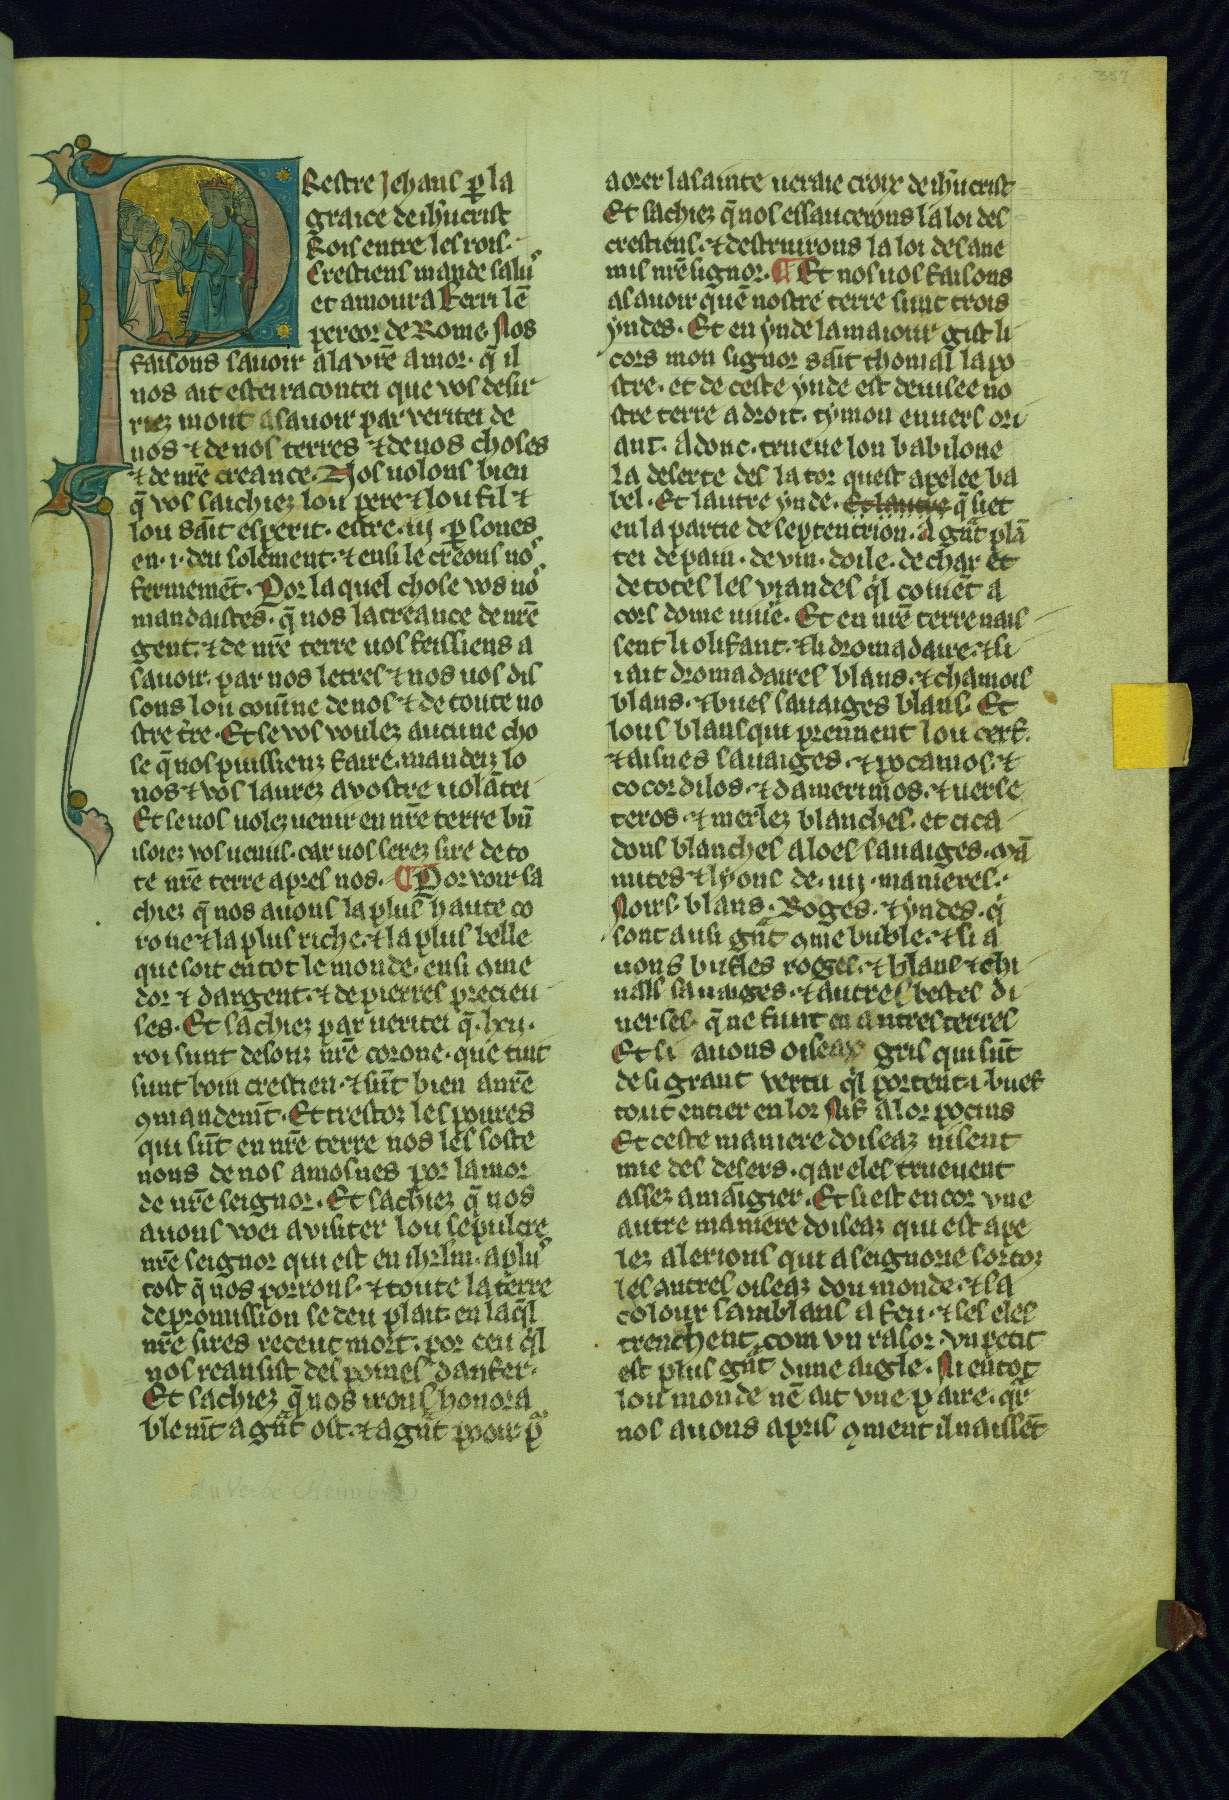 357
Restre Jehans p̲ la
graice de ih̄ucrist
Rois entre les rois
Crestiens mande salu⁹
et amour a Ferri lē
pereor de Rome. Nos
faisons savoir a la vr̄e amor. q̄ il
nos ait estei racontei que vos desir
riez mont a savoir par veritei de
nos ⁊ de nos terres ⁊ de nos choses
⁊ de nr̄e creance. Nos volons bien
q̄ vos saichiez lou pere ⁊ lou fil ⁊
lou saīt esperit. estre .iij. p̲sones
en .i. deu solement. ⁊ ensi le creons no⁹
fermemēt. Por laquel chose vos no⁹
mandaistes. q̄ nos la creance de nr̄e
gent. ⁊ de nr̄e terre vos feissiens a
savoir. par nos letres ⁊ nos vos dis
sons lou couīne de nos ⁊ de toute no
stre t̄re. Et se vos voulez aucune cho
se q̄ nos puissienz faire. mandeiz lo
nos ⁊ vos laurez a vostre volātei
Et se vos volez venir en nr̄e terre bn̄
isoiez vos venus. car vos serez sire de to
te nr̄e terre apres nos. ¶ Por voir sa
chiez q̄ nos avons la plus haute co
rone ⁊ la plus riche. ⁊ la plus belle
que soit en tot le monde. ensi ꝯme
dor ⁊ dargent. ⁊ de pierres precieu
ses. Et sachiez par veritei q̄ .lxij.
roi sunt desouz nr̄e corone. que tuit
sunt boin crestien. ⁊ sūt bien a nr̄e
ꝯmandemt̄. Et trestoz les poures
qui sūt en nr̄e terre nos les soste
nons de nos amosnes por lamor
de nr̄e seignor. Et sachiez q̄ nos
avons voei a visiter lou sepulcre
nr̄e seignor qui est en ih̄rlm. a plu⁹
tost q̄ nos porrons. ⁊ toute la terre
de promission se deu plait. en laq̄l
nr̄e sires receut mort. por ceu q̄l
nos reansist des poines danfer.
Et sachiez q̄ nos irons honora
blemt̄ a gn̄t ost. ⁊ a gn̄t pooir p̲
aorer la sainte veraie croix de ih̄ucrist
Et sachiez q̄ nos essaucerons la loi des
crestiens. ⁊ destruirons la loi des ane
mis nr̄e signor. ¶ Et nos vos faisons
asavoir q̄ en̄ nostre terre sunt trois
yndes. Et en ynde la maiour gist li
cors mon signor saīt thomas lapo
stre. et de ceste ynde est devisee no
stre terre a droit. tymon envers ori
ant. Adonc. trueve lon babilone
la deserte des la tor quest apelee ba
bel. Et lautre ynde. Et lautre q̄ siet
en la partie de septentrion. A gn̄t plā
tei de pain. de vin. doile. de char et
de totes les viandes q̄l coviēt a
cors dome viure. Et en nr̄e terre nais
sent li olifant. ⁊ li dromadaire. ⁊ si
i ait dromadaires blans. ⁊ chamois
blans. ⁊ bues sauaiges blans. Et
lous blans qui prennent lou cerf.
⁊ aisnes sauaiges. ⁊ pocamos. ⁊
cocordilos. ⁊ damerinos. ⁊ verse
teros. ⁊ merlez blanches. et cica
dons blanches aloes sauaiges. mā
nutes ⁊ lyons de .iiij. manieres.
Noirs. blans. Roges. ⁊ yndes. q̄
sont ausi gn̄t ꝯme buble. ⁊ si a
uons bufles roges. ⁊ blans ⁊ chi
uals sauaiges. ⁊ autres bestes di
uerses. q̄ ne sunt en autres terres
Et si avons oiseax gris qui sūt
de si grant vertu q̄l portent .i. buef
tout entier en lor nif a lor pocins
Et ceste maniere doiseaz nisent
mie des desers. qar eles truevent
assez a maīgier. Et si est encor vne
autre maniere doiseaz qui est ape
lez alerions qui a seignorie sor toz
les autres oiseaz dou monde. ⁊ la
colour samblans a feu. ⁊ ses eles
trenchent com vn rasor. vn petit
est plus gn̄t dune aigle. Ni en tot
lou monde nē ait vne paire. qr̄
nos auons apris ꝯment il naissēt